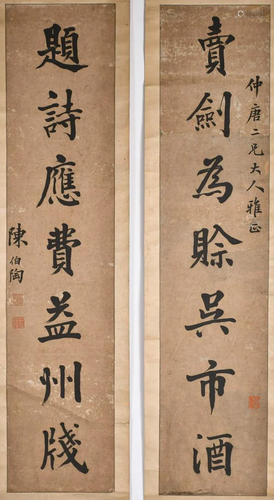 仲唐二兄大人雅正
賣劍為賒吳市酒
題詩應費益州牋
陳伯陶